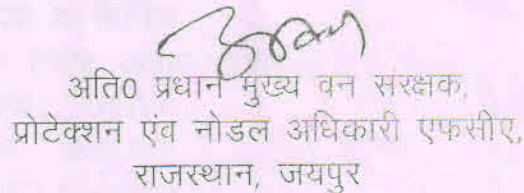 अति0 प्रधान मुख्य वन संरक्षक,
प्रोटेक्शन एंव नोडल अधिकारी एफसीए,
राजस्थान, जयपुर